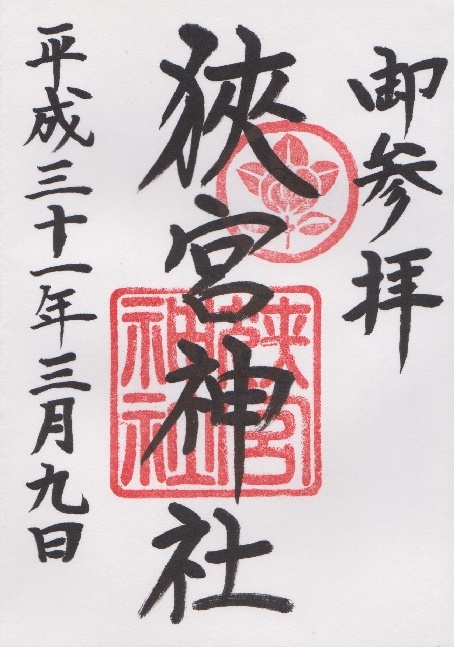 御参拝
狹宮神社
狭宮神社
平成三十一年三月九日